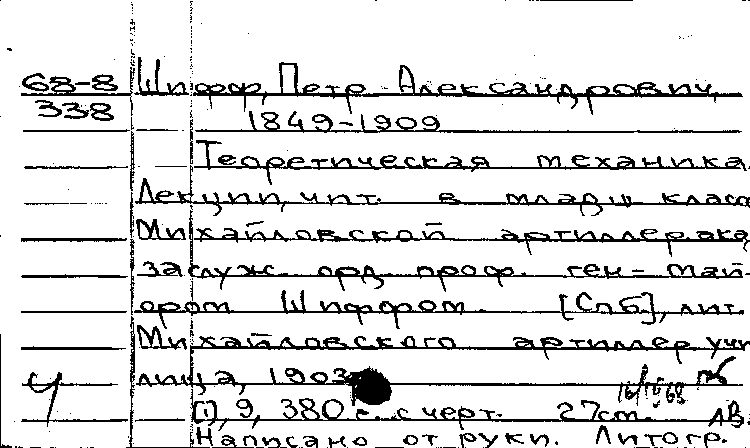 68-8 Шифф, Петр Александрович,
338 1849-1909
Теоретическая механика
Лекции, чит. в младш класс
Михайловской артиллер ака
заслуж. орд. проф. ген-май-
ором Шиффом. [Спб], лит.
Михайловского артиллер учи
лища, 1903
[1], 9, 380 с. с черт. 27см. ЛВ
Написано от руки. Литогр.